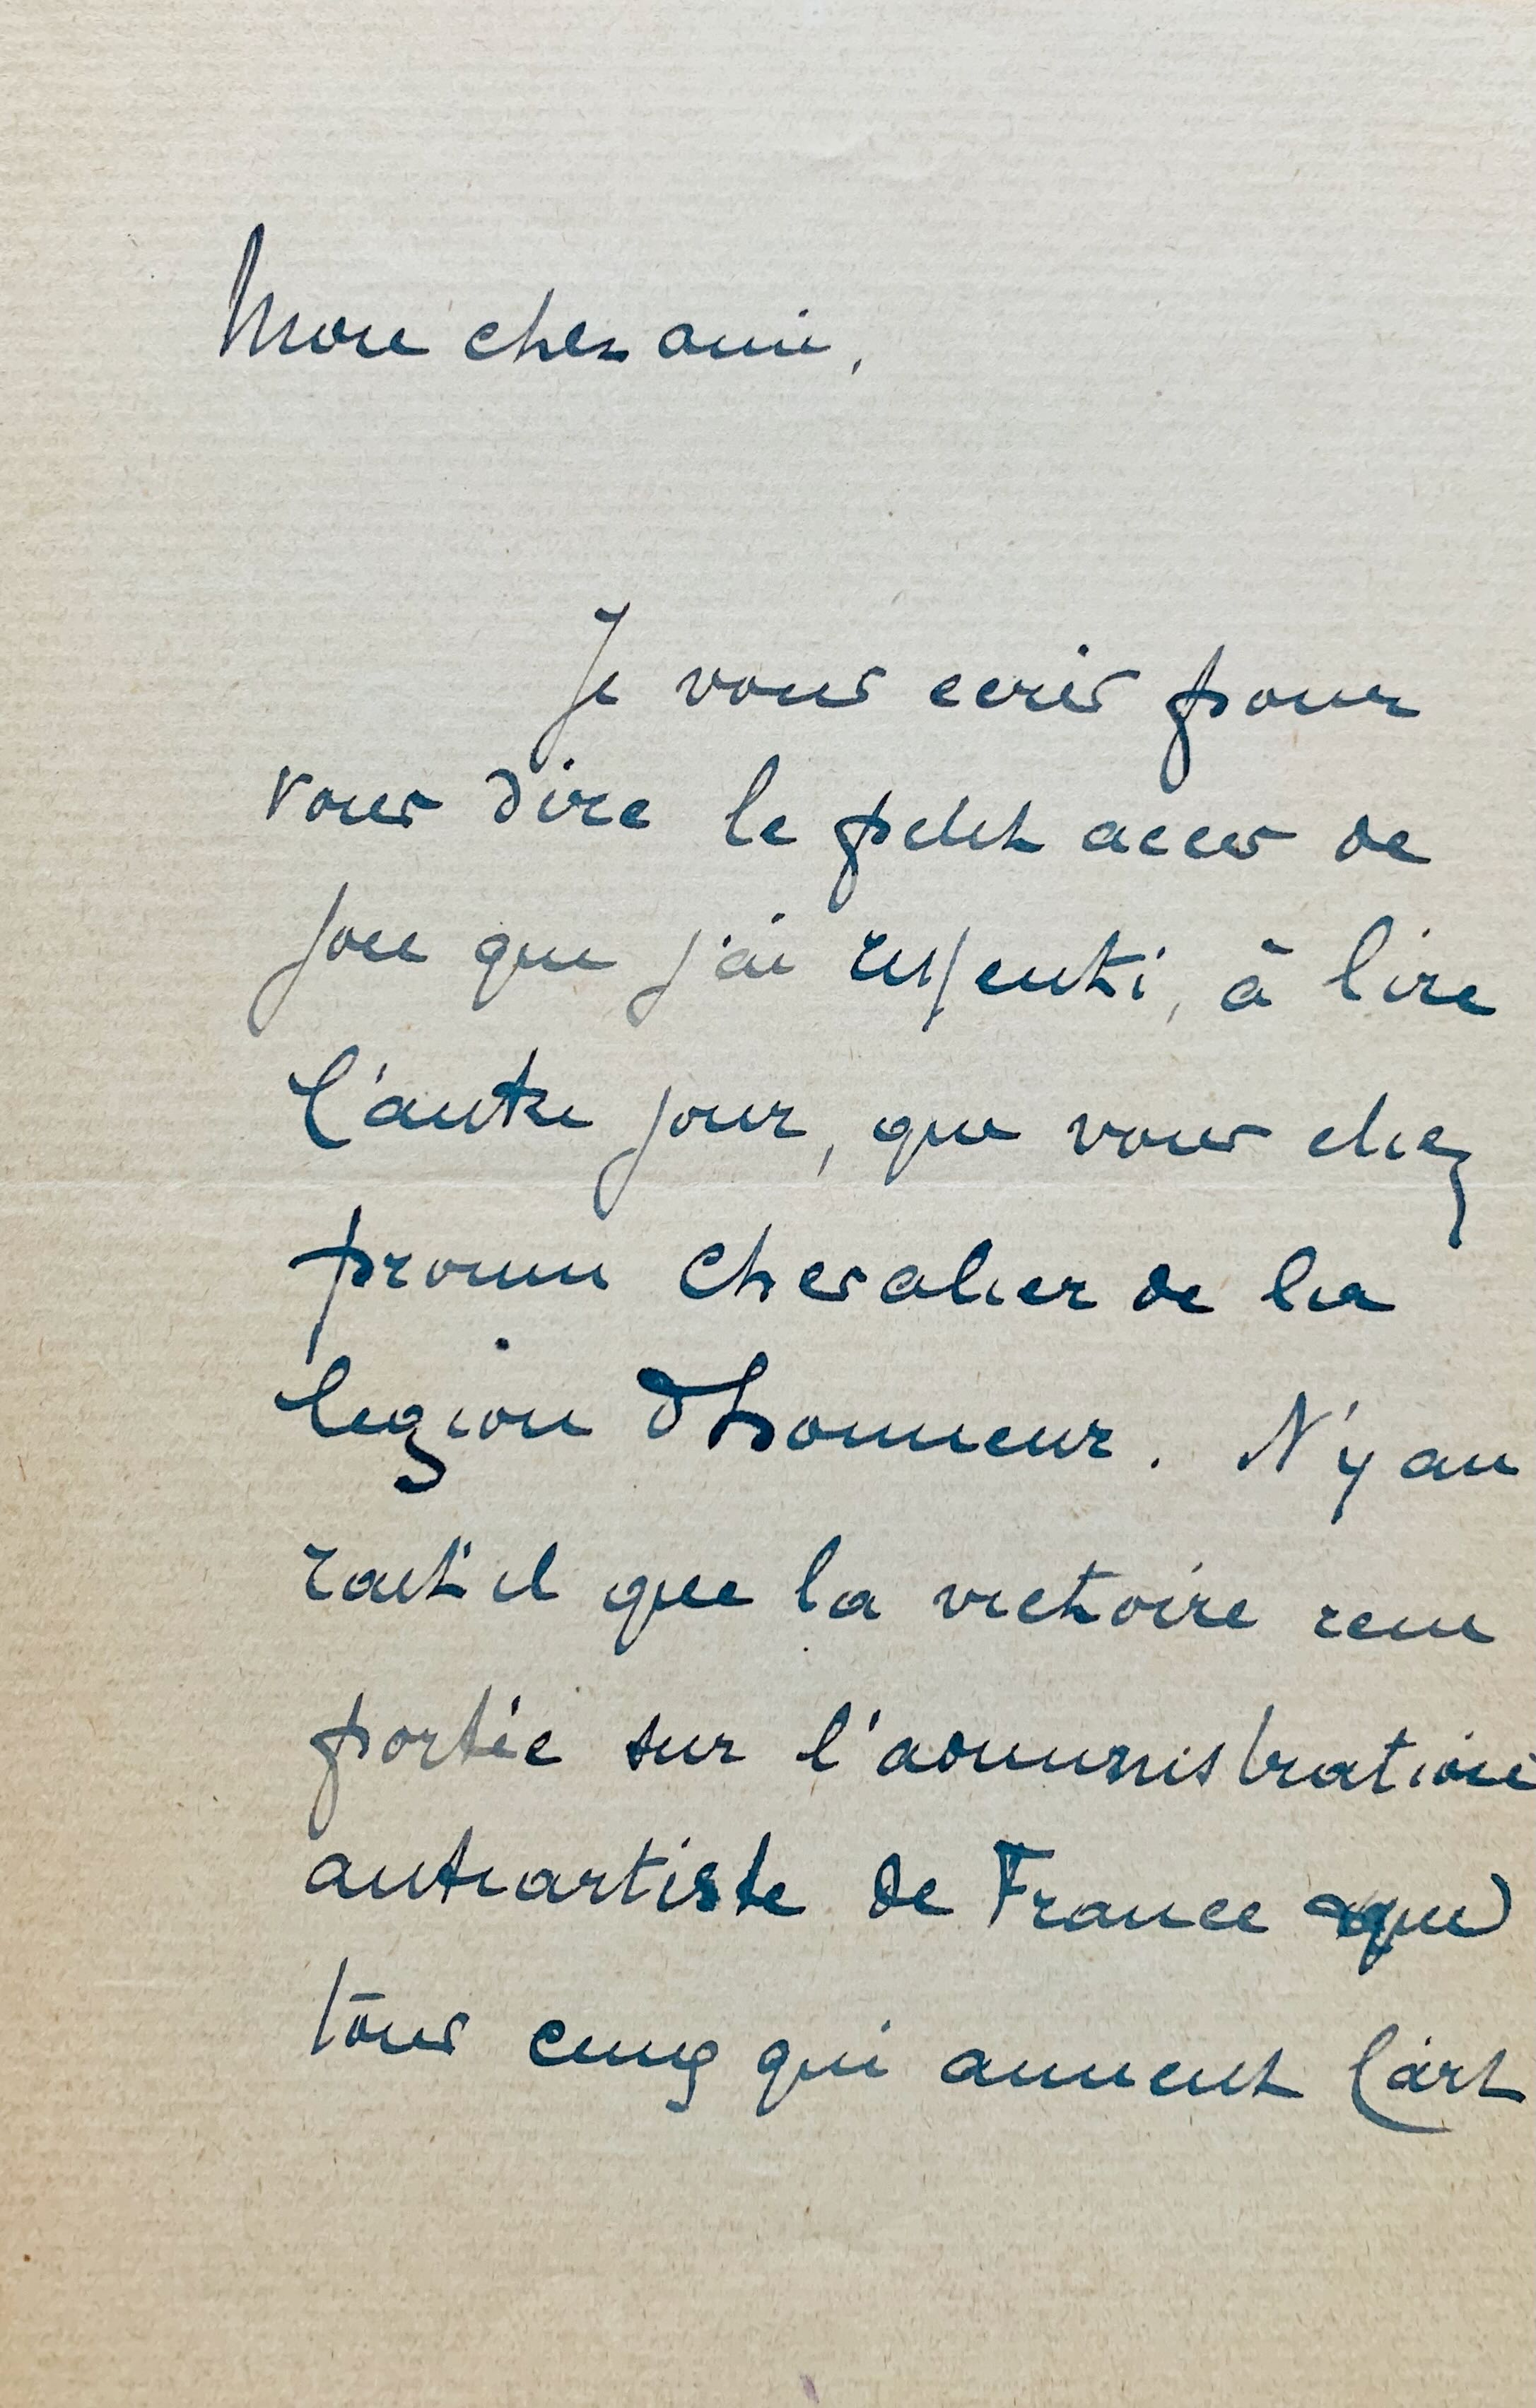 Mon cher ami,
Je vous ecris pour
vous dire le petit acces de
joie que j'ai ressenti, à lire
l'autre jour, que vous etiez
promu chevalier de la
legion d'honneur. N'y au
rait'il que la victoire rem
portée sur l'administration
antiartiste de France que
tous ceux qui aiment l'art